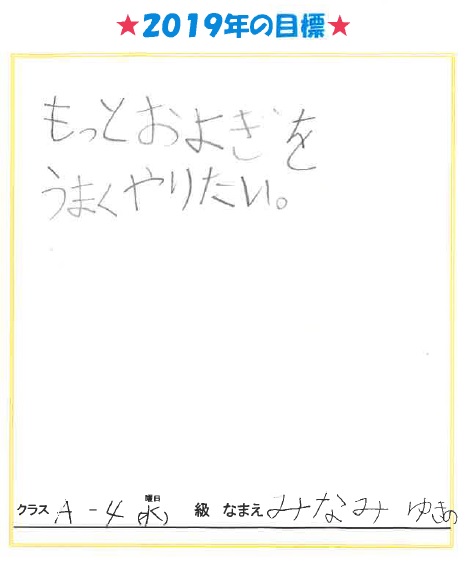 ★2019年の目標★
もっとおよぎを
うまくやりたい。
クラス A-4(水) 曜日 級 なまえ みなみ ゆきの